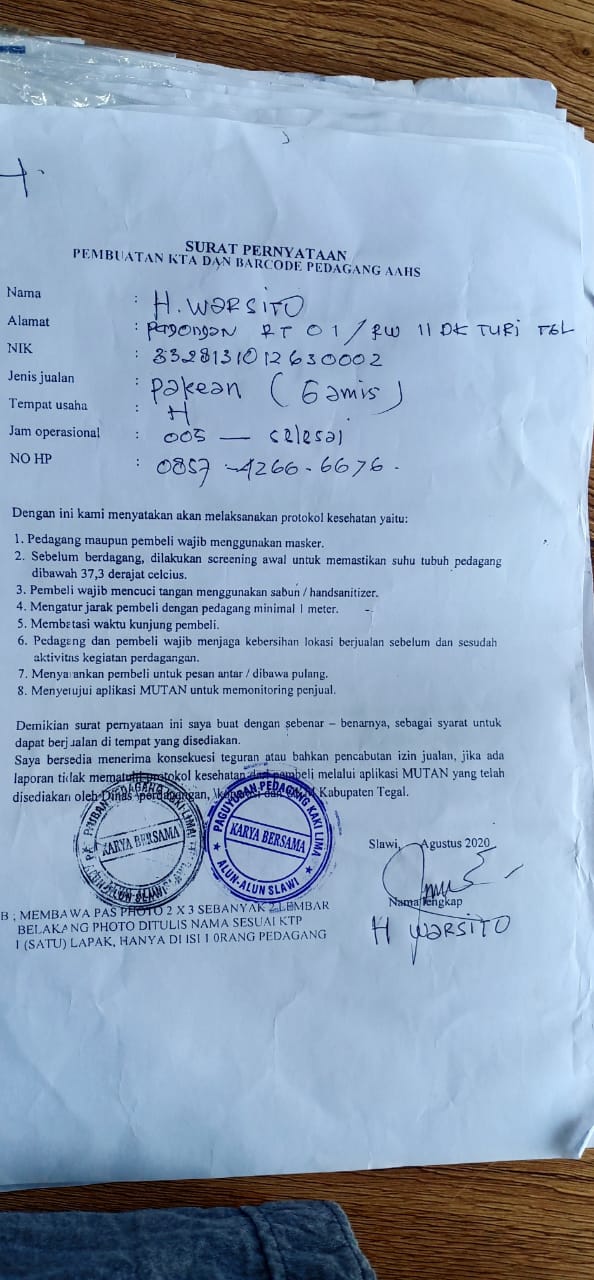 H.
SURAT PERNYATAAN
PEMBUATAN KTA DAN BARCODE PEDAGANG AAHS
Nama : H. WARSITO
Alamat : PAGONGAN RT 01 / RW 11 DK TURI TGL
NIK : 3328131012630002
Jenis jualan : pakean ( Gamis )
Tempat usaha : H
Jam operasional : 005 — selesai
NO HP : 0857-4266-6676-
Dengan ini kami menyatakan akan melaksanakan protokol kesehatan yaitu:
1. Pedagang maupun pembeli wajib menggunakan masker.
2. Sebelum berdagang, dilakukan screening awal untuk memastikan suhu tubuh pedagang
dibawah 37,3 derajat celcius.
3. Pembeli wajib mencuci tangan menggunakan sabun / handsanitizer.
4. Mengatur jarak pembeli dengan pedagang minimal 1 meter.
5. Membatasi waktu kunjung pembeli.
6. Pedagang dan pembeli wajib menjaga kebersihan lokasi berjualan sebelum dan sesudah
aktivitas kegiatan perdagangan.
7. Menyarankan pembeli untuk pesan antar / dibawa pulang.
8. Menyetujui aplikasi MUTAN untuk memonitoring penjual.
Demikian surat pernyataan ini saya buat dengan sebenar – benarnya, sebagai syarat untuk
dapat berjualan di tempat yang disediakan.
Saya bersedia menerima konsekuesi teguran atau bahkan pencabutan izin jualan, jika ada
laporan tidak mematuhi protokol kesehatan dari pembeli melalui aplikasi MUTAN yang telah
disediakan oleh Dinas Perdagangan, Kabupaten Tegal.
PAGUYUBAN PEDAGANG KAKI LIMA
KARYA BERSAMA
ALUN-ALUN SLAWI
PAGUYUBAN PEDAGANG KAKI LIMA
KARYA BERSAMA
ALUN-ALUN SLAWI
Slawi, Agustus 2020
Nama lengkap
H WARSITO
B ; MEMBAWA PAS PHOTO 2 X 3 SEBANYAK 2 LEMBAR
BELAKANG PHOTO DITULIS NAMA SESUAI KTP
1 (SATU) LAPAK, HANYA DI ISI 1 0RANG PEDAGANG